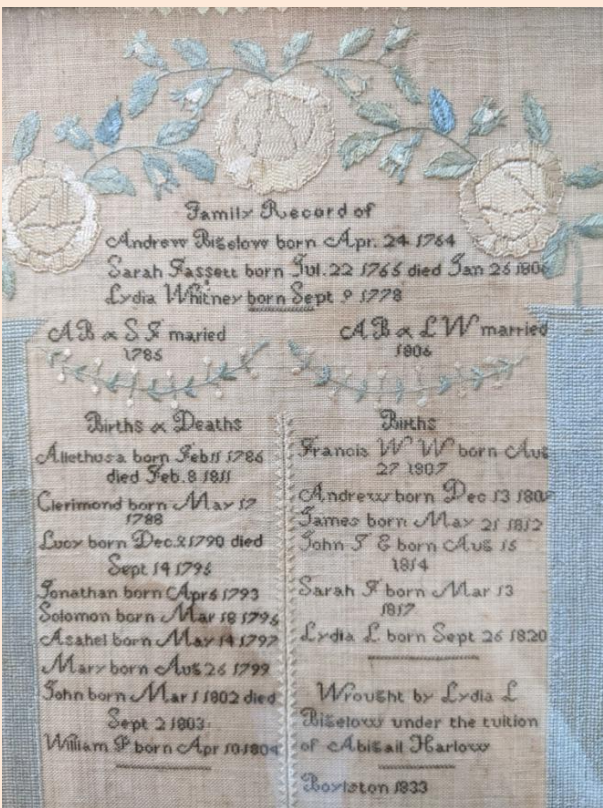 Family Record of
Andrew Bigelow born Apr. 24 1764
Sarah Fassett born Jul. 22 1765 died Jan 25
Lydia Whitney born Sept 9 1778
AB & S F maried
1785
AB & L W married
1806
Births & Deaths
Aliethusa born Feb 11 1786
died Feb. 8 1811
Clerimond born May 17
1788
Lucy born Dec. 1790 died
Sept 14 1795
Jonathan born Apr 6 1793
Solomon born Mar 18 1795
Asahel born May 14 1797
Mary born Aug 26 1799
John born Mar 1 1802 died
Sept 2 1803
William P born Apr 10 1804
Births
Francis W W born Aug
27 1807
Andrew born Dec 13
James born May 21 1812
John F E born Aug 15
1814
Sarah F born Mar 13
1817
Lydia L born Sept 26 1820
Wrought by Lydia L
Bigelow under the tuition
of Abigail Harlow
Boylston 1833